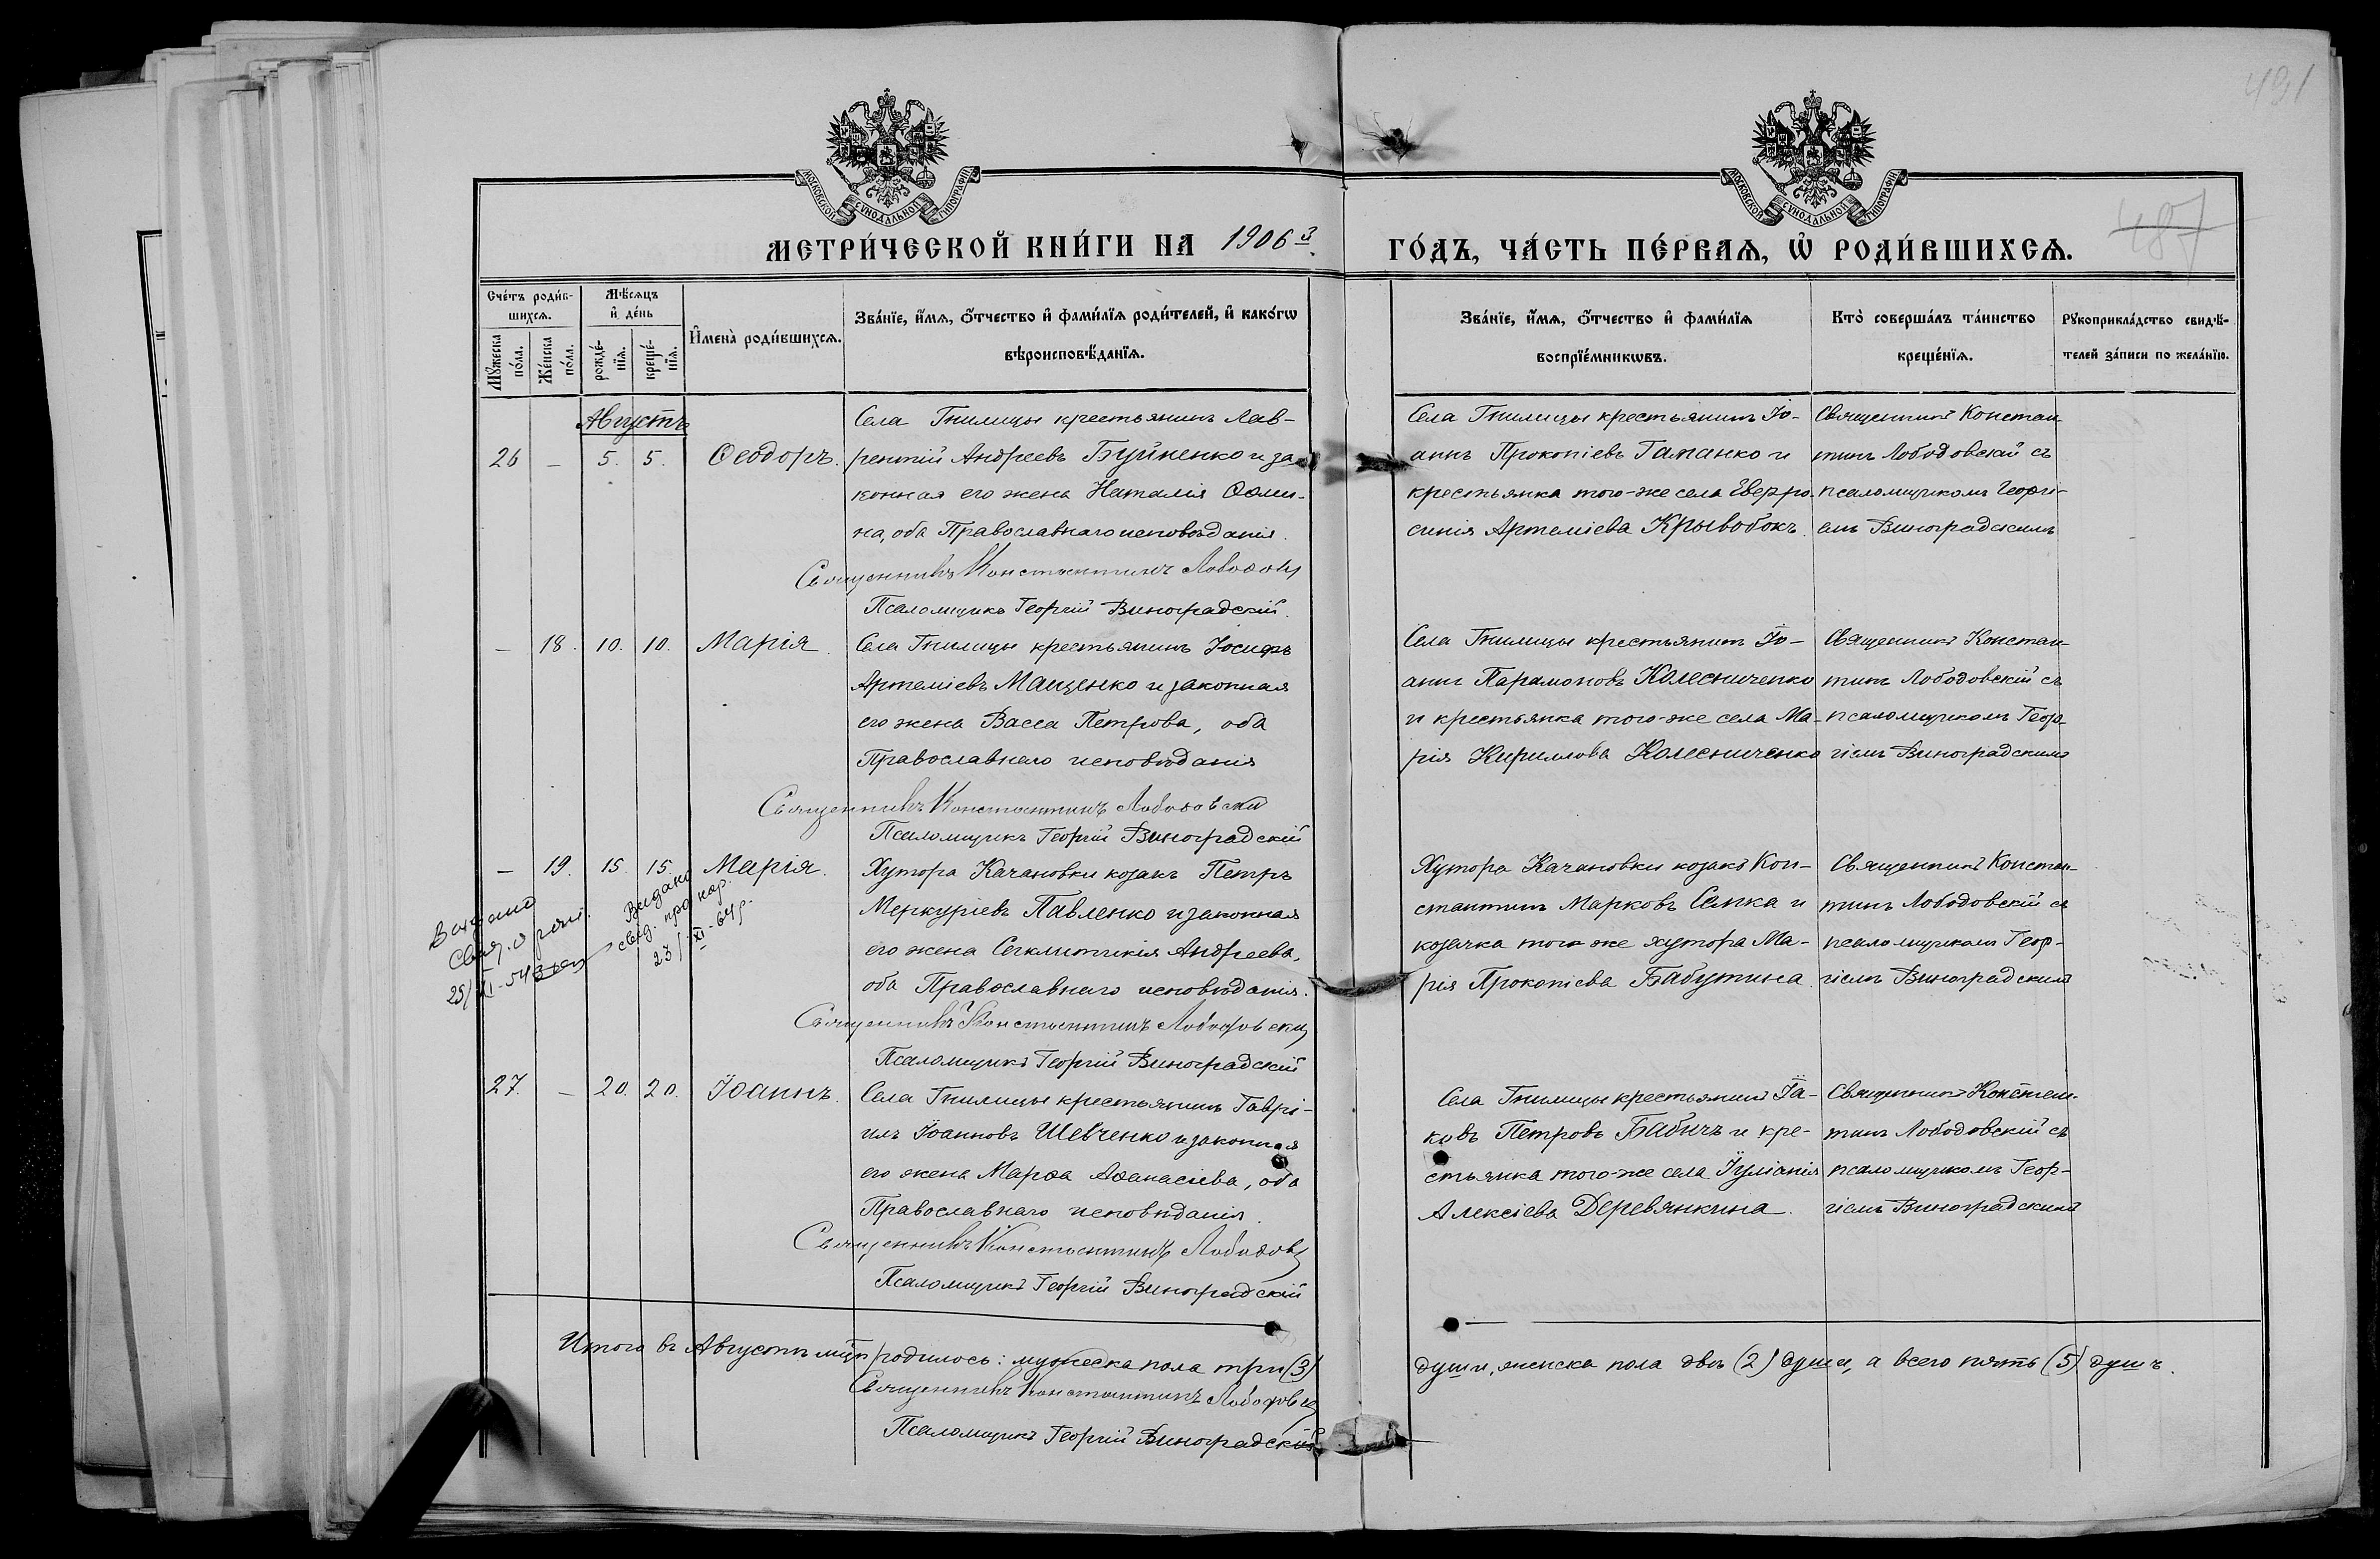 491
МОСКОВСКОЙ СУНОДАЛЬНОЙ ТИПОГРАФІИ
МОСКОВСКОЙ СУНОДАЛЬНОЙ ТИПОГРАФІИ
487
МЕТРИ́ЧЕСКОЙ КНИ́ГИ НА 1906 й
ГО́ДЪ, ЧА́СТЬ ПЕ́РВАѦ, Ѡ҆ РОДИ́ВШИХСѦ.
Сче́тъ роди́в-
шихсѧ.
Мꙋжеска по́ла.
Же́нска по́ла.
Мѣ́сѧцъ
и҆ де́нь
рожде́-
нїѧ.
креще́-
нїѧ.
И҆мена̀ роди́вшихсѧ.
Зва́нїе, и҆́мѧ, ѻ҆́тчество и҆ фами́лїѧ роди́телей, и҆ како́гѡ
вѣроисповѣ́данїѧ.
Зва́нїе, и҆́мѧ, ѻ҆́тчество и҆ фами́лїѧ
воспрїе́мникѡвъ.
Кто̀ соверша́лъ та́инство
креще́нїѧ.
Рꙋкоприкла́дство свидѣ́-
телей за́писи по жела́нїю.
Августъ
26 — 5. 5. Ѳеодоръ.
Села Гнилицы крестьянинъ Лав-
рентій Андреевъ Буйненко и за-
конная его жена Наталія Ѳоми-
на, оба Православнаго исповѣданія.
Священникъ Константинъ Лободовс
Псаломщикъ Георгій Виноградскій.
Села Гнилицы крестьянинъ Іо-
аннъ Прокопіевъ Гапанко и
крестьянка того-же села Евфро-
синія Артеміева Крывобокъ.
Священникъ Констан-
тинъ Лободовскій съ
псаломщикомъ Георгі-
емъ Виноградскимъ
— 18. 10. 10. Марія.
Села Гнилицы крестьянинъ Іосифъ
Артеміевъ Мащенко и законная
его жена Васса Петрова, оба
Православнаго исповѣданія
Священникъ Константинъ Лободовскій
Псаломщикъ Георгій Виноградскій
Села Гнилицы крестьянинъ Іо-
аннъ Парамоновъ Колесниченко
и крестьянка того-же села Ма-
рія Кириллова Колесниченко
Священникъ Констан-
тинъ Лободовскій съ
псаломщикомъ Геор-
гіемъ Виноградскимъ
— 19. 15. 15. Марія.
Хутора Качановки козакъ Петръ
Меркуріевъ Павленко и законная
его жена Сигклитикія Андреева,
оба Православнаго исповѣданія.
Священникъ Константинъ Лободовскій
Псаломщикъ Георгій Виноградскій
Видано
свід. про нар.
23/XI-64р.
25/XI-54
Хутора Качановки козакъ Кон-
стантинъ Марковъ Сепка и
козачка того же хутора Ма-
рія Прокопіева Бабутина.
Священникъ Констан-
тинъ Лободовскій съ
псаломщикомъ Геор-
гіемъ Виноградскимъ
27. — 20. 20. Іоаннъ.
Села Гнилицы крестьянинъ Гаврі-
илъ Іоанновъ Шевченко и законная
его жена Марѳа Аѳанасіева, оба
Православнаго исповѣданія.
Священникъ Константинъ Лободовс
Псаломщикъ Георгій Виноградскій
Села Гнилицы крестьянинъ Іа-
ковъ Петровъ Бабичъ и кре-
стьянка того-же села Іуліанія
Алексіева Деревянкина.
Священникъ Констан-
тинъ Лободовскій съ
псаломщикомъ Геор-
гіемъ Виноградскимъ
Итого въ Августѣ мцѣ родилось: мужеска пола три (3)
души, женска пола двѣ (2) души, а всего пять (5) душъ.
Священникъ Константинъ Лободовс
Псаломщикъ Георгій Виноградскій